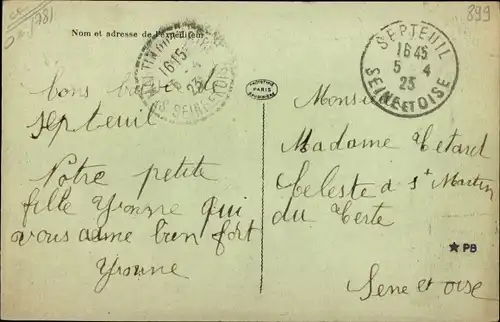 (181
899
Nom et adresse de l'expéditeur
16 15
5 - 4
25
SEINE ET OISE
SEPTEUIL
16 45
5 - 4
25
SEINE ET OISE
PARIS
bons de
septeuil
Notre petite
fille Yvonne qui
vous aime bien fort
Yvonne
Monsieur
Madame Tetard
Celeste a St Martin
du Terte
Seine et oise
★ PB